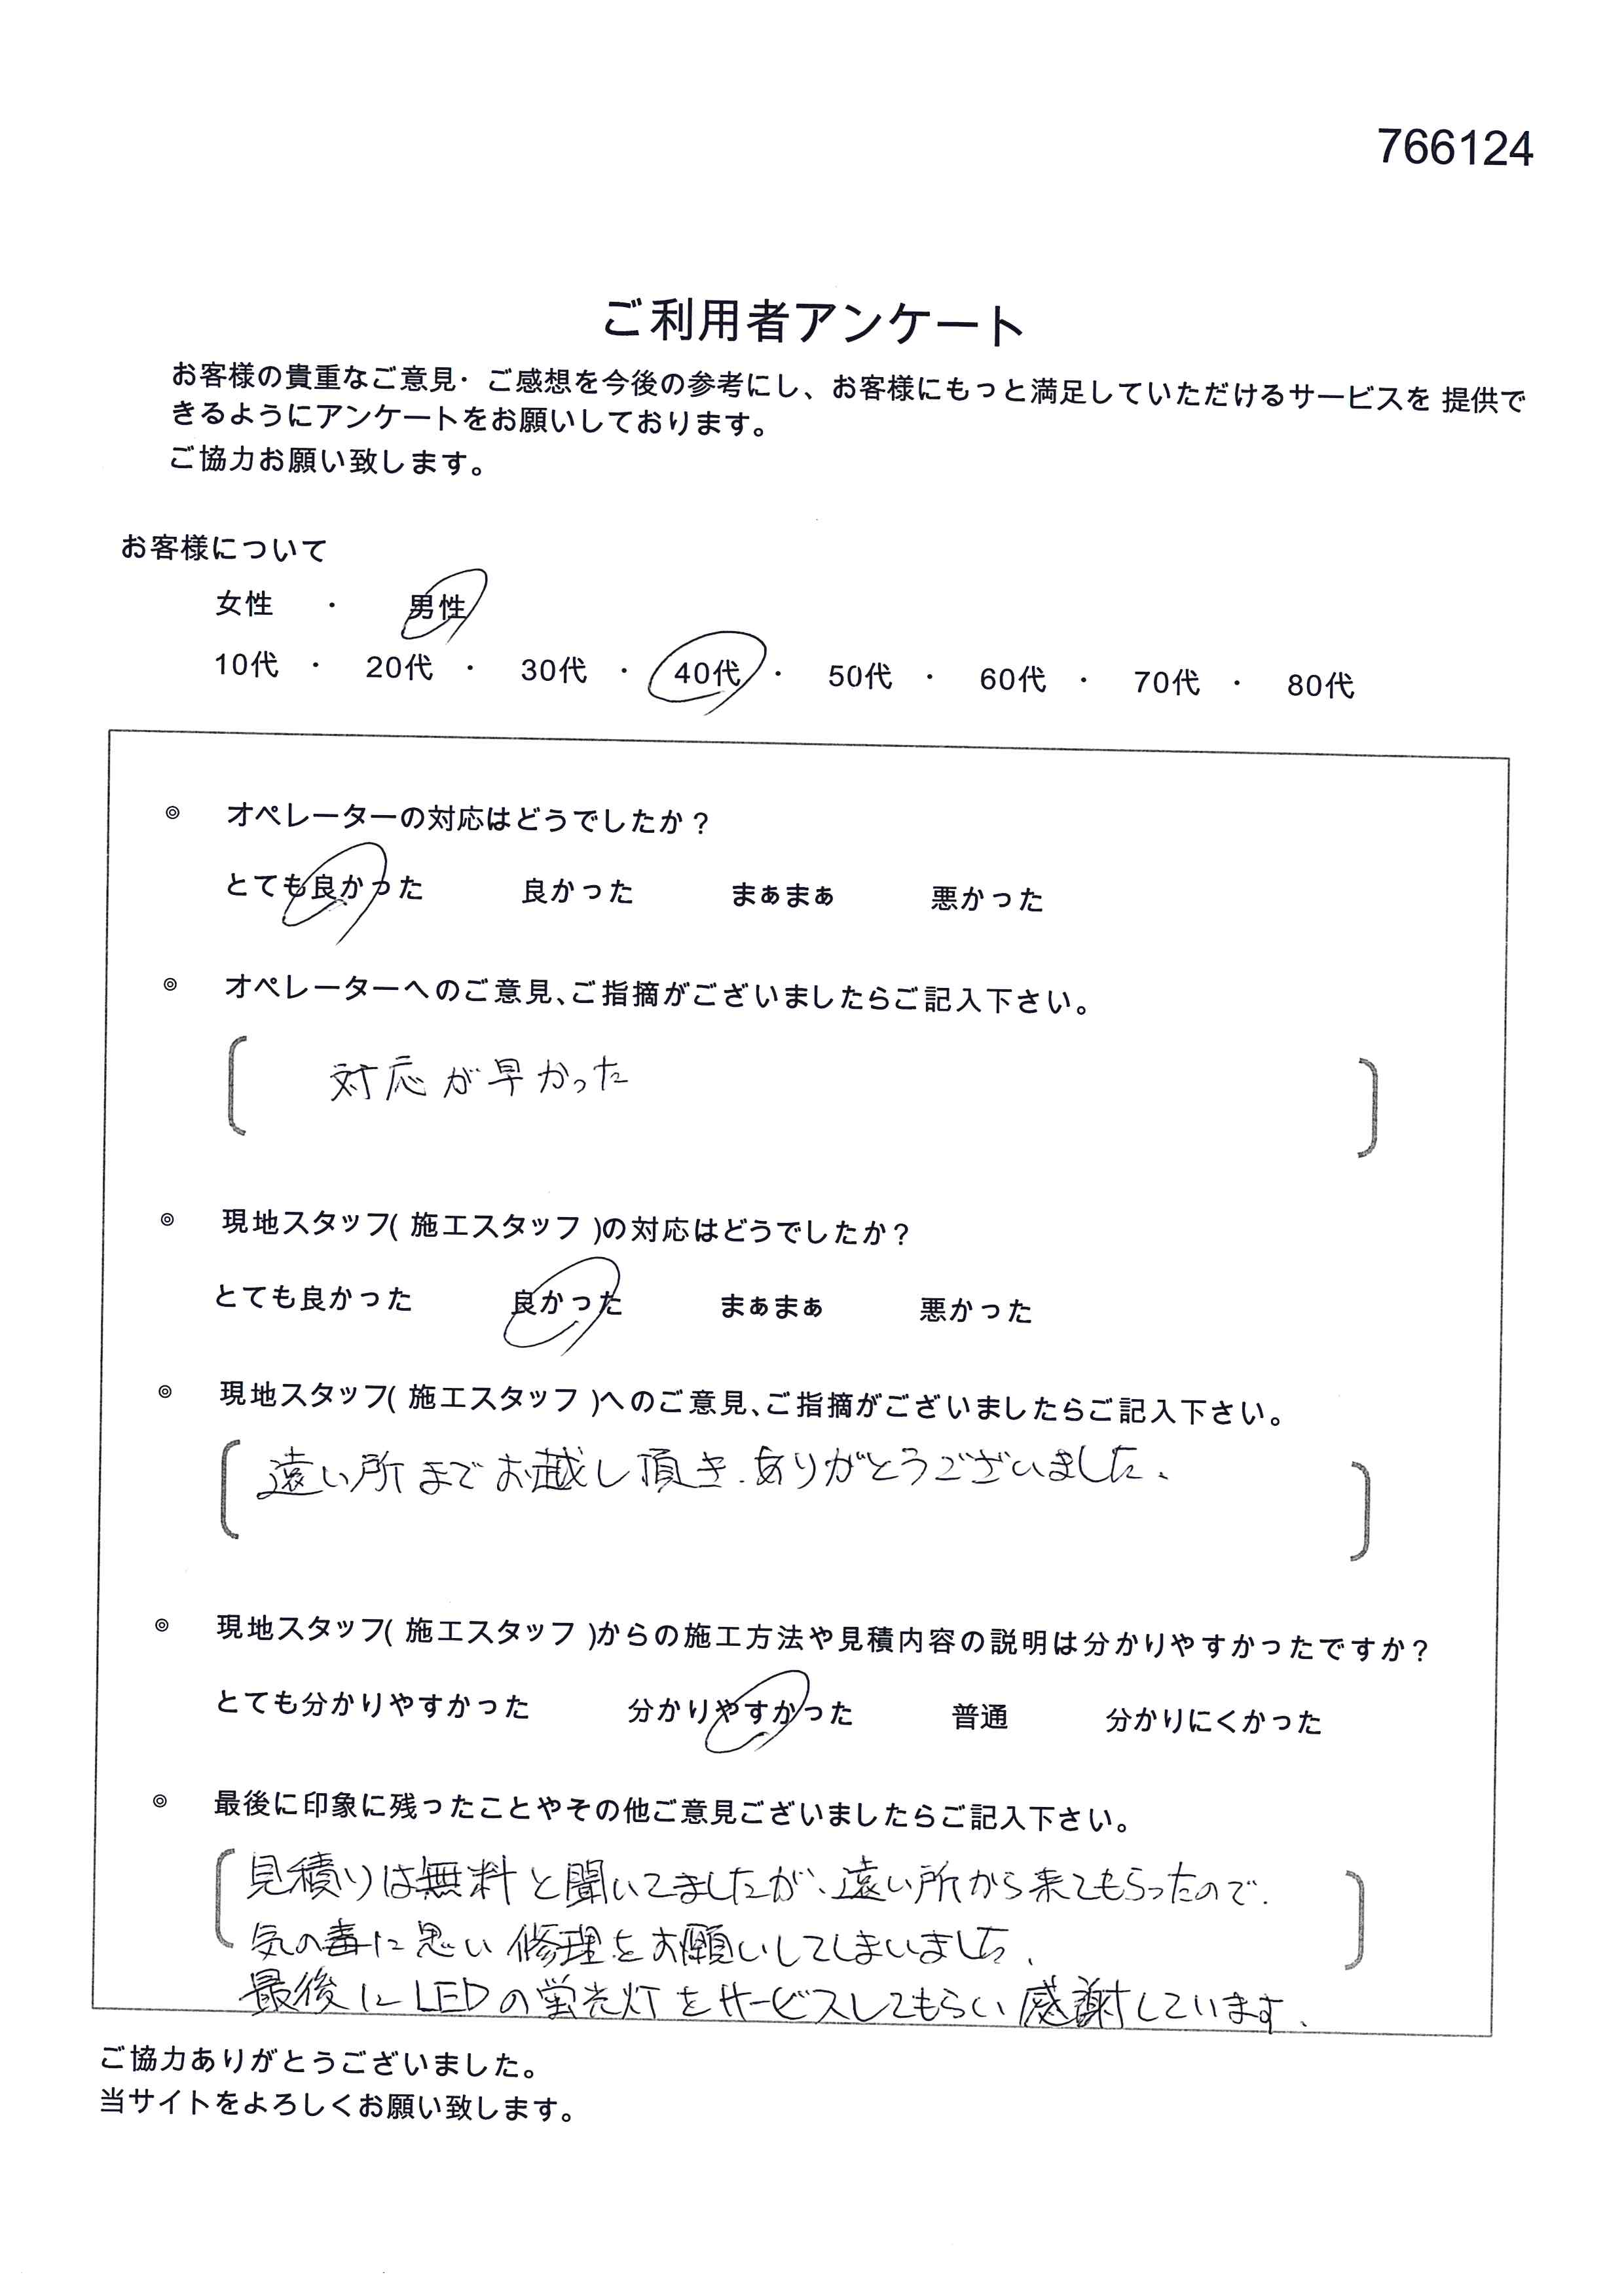 766124
ご利用者アンケート
お客様の貴重なご意見・ご感想を今後の参考にし、お客様にもっと満足していただけるサービスを 提供で
きるようにアンケートをお願いしております。
ご協力お願い致します。
お客様について
女性 ・ 男性
10代 ・ 20代 ・ 30代 ・ 40代 ・ 50代 ・ 60代 ・ 70代 ・ 80代
◎ オペレーターの対応はどうでしたか？
とても良かった 良かった まぁまぁ 悪かった
◎ オペレーターへのご意見、ご指摘がございましたらご記入下さい。
対応が早かった
◎ 現地スタッフ( 施工スタッフ )の対応はどうでしたか？
とても良かった 良かった まぁまぁ 悪かった
◎ 現地スタッフ( 施工スタッフ )へのご意見、ご指摘がございましたらご記入下さい。
遠い所までお越し頂き、ありがとうございました、
◎ 現地スタッフ( 施工スタッフ )からの施工方法や見積内容の説明は分かりやすかったですか？
とても分かりやすかった 分かりやすかった 普通 分かりにくかった
◎ 最後に印象に残ったことやその他ご意見ございましたらご記入下さい。
見積りは無料と聞いてましたが、遠い所から来てもらったので、
気の毒に思い修理をお願いしてしまいました、
最後にLEDの蛍光灯をサービスしてもらい感謝しています、
ご協力ありがとうございました。
当サイトをよろしくお願い致します。